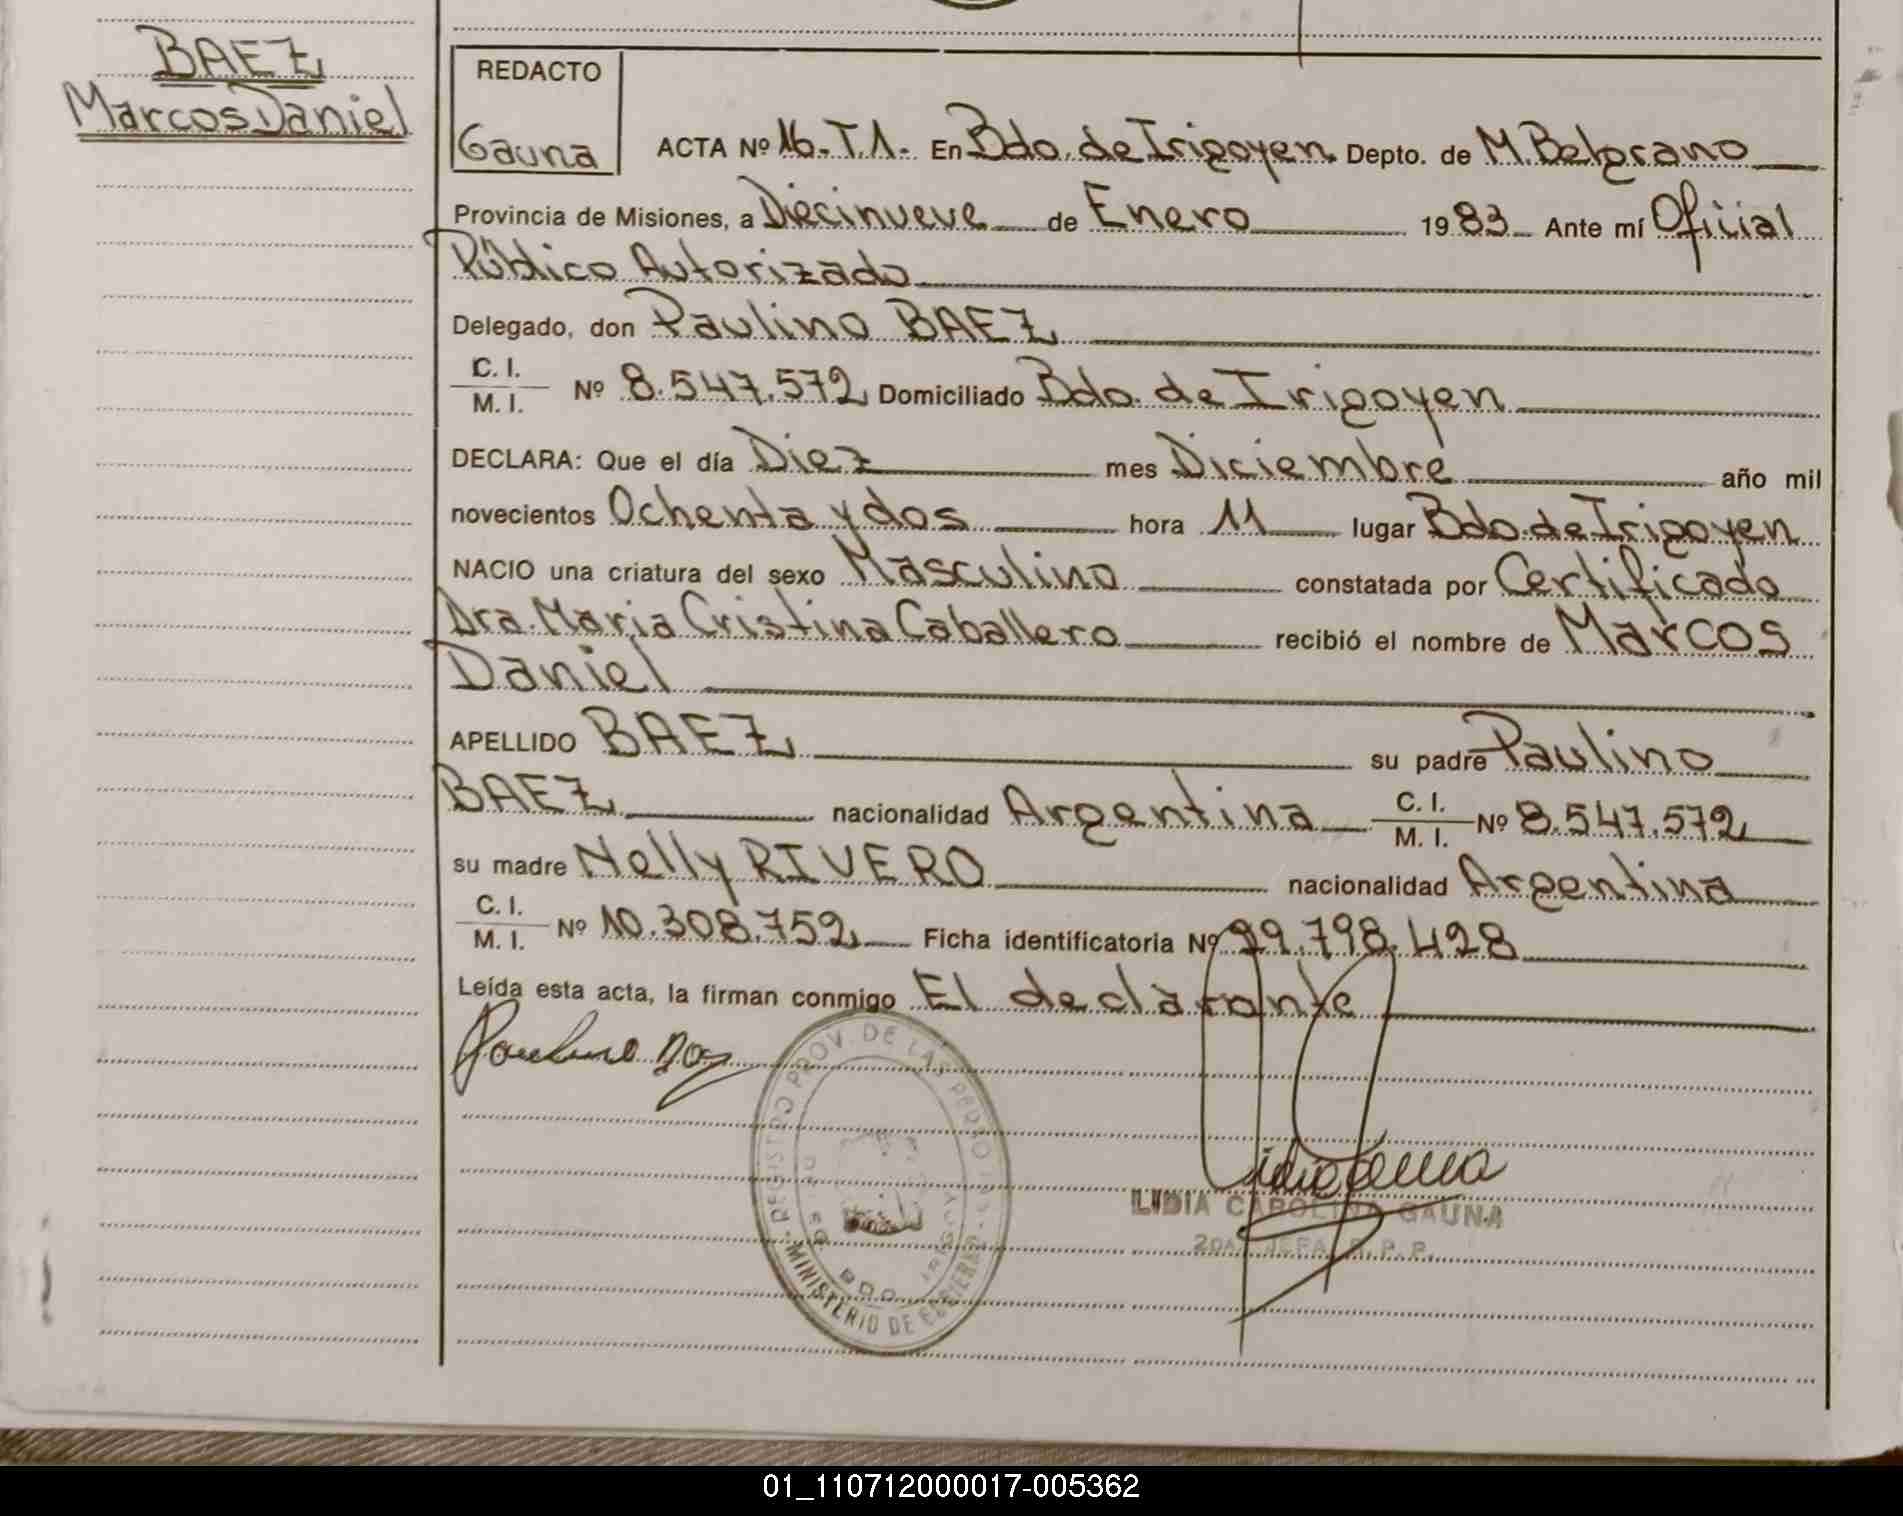 BAEZ
Marcos Daniel
REDACTO
Gauna
ACTA Nº 16-T.1- En Bdo. de Irigoyen Depto. de M. Belgrano
Provincia de Misiones, a Diecinueve de Enero 1983 Ante mí Oficial
Público Autorizado
Delegado, don Paulino BAEZ
C. I.
M. I. Nº 8.547.572 Domiciliado Bdo. de Irigoyen
DECLARA: Que el día Diez mes Diciembre año mil
novecientos Ochenta y dos hora 11 lugar Bdo. de Irigoyen
NACIO una criatura del sexo Masculino constatada por Certificado
Dra. Maria Cristina Caballero recibió el nombre de Marcos
Daniel
APELLIDO BAEZ su padre Paulino
BAEZ nacionalidad Argentina C. I. M. I. Nº 8.547.572
su madre Nelly RIVERO nacionalidad Argentina
C. I.
M. I. Nº 10.308.752 Ficha identificatoria Nº 29.798.428
Leída esta acta, la firman conmigo El declarante
REGISTRO PROV. DE LAS PERSONAS
MINISTERIO DE GOBIERNO
BDO. IRIGOYEN
LIDIA CAROLINA GAUNA
2DA. JEFA R. P. P.
01_110712000017-005362